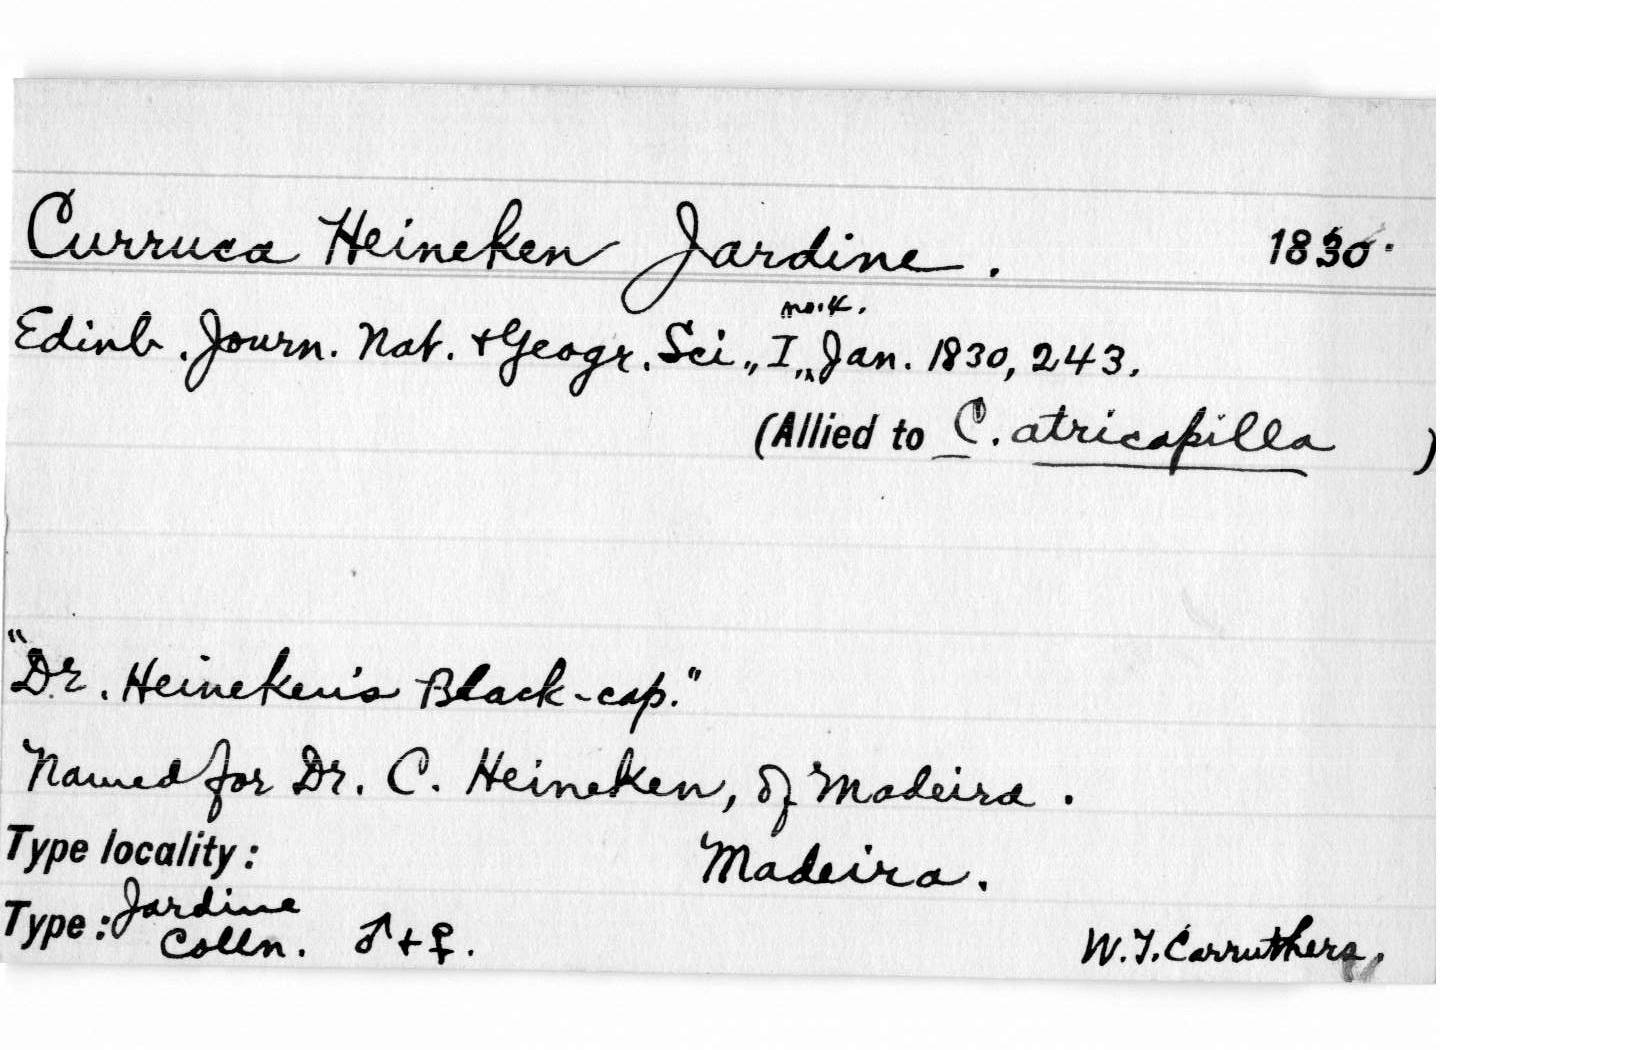 Curruca Heineken Jardine. 1830.
no. 4.
Edinb. Journ. Nat. + Geogr. Sci., I, Jan. 1830, 243.
(Allied to C. atricapilla )
"Dr. Heineken's Black-cap."
Named for Dr. C. Heineken, of Madeira.
Type locality: Madeira.
Type: Jardine
Colln. ♂ + ♀. W.J. Carruthers.